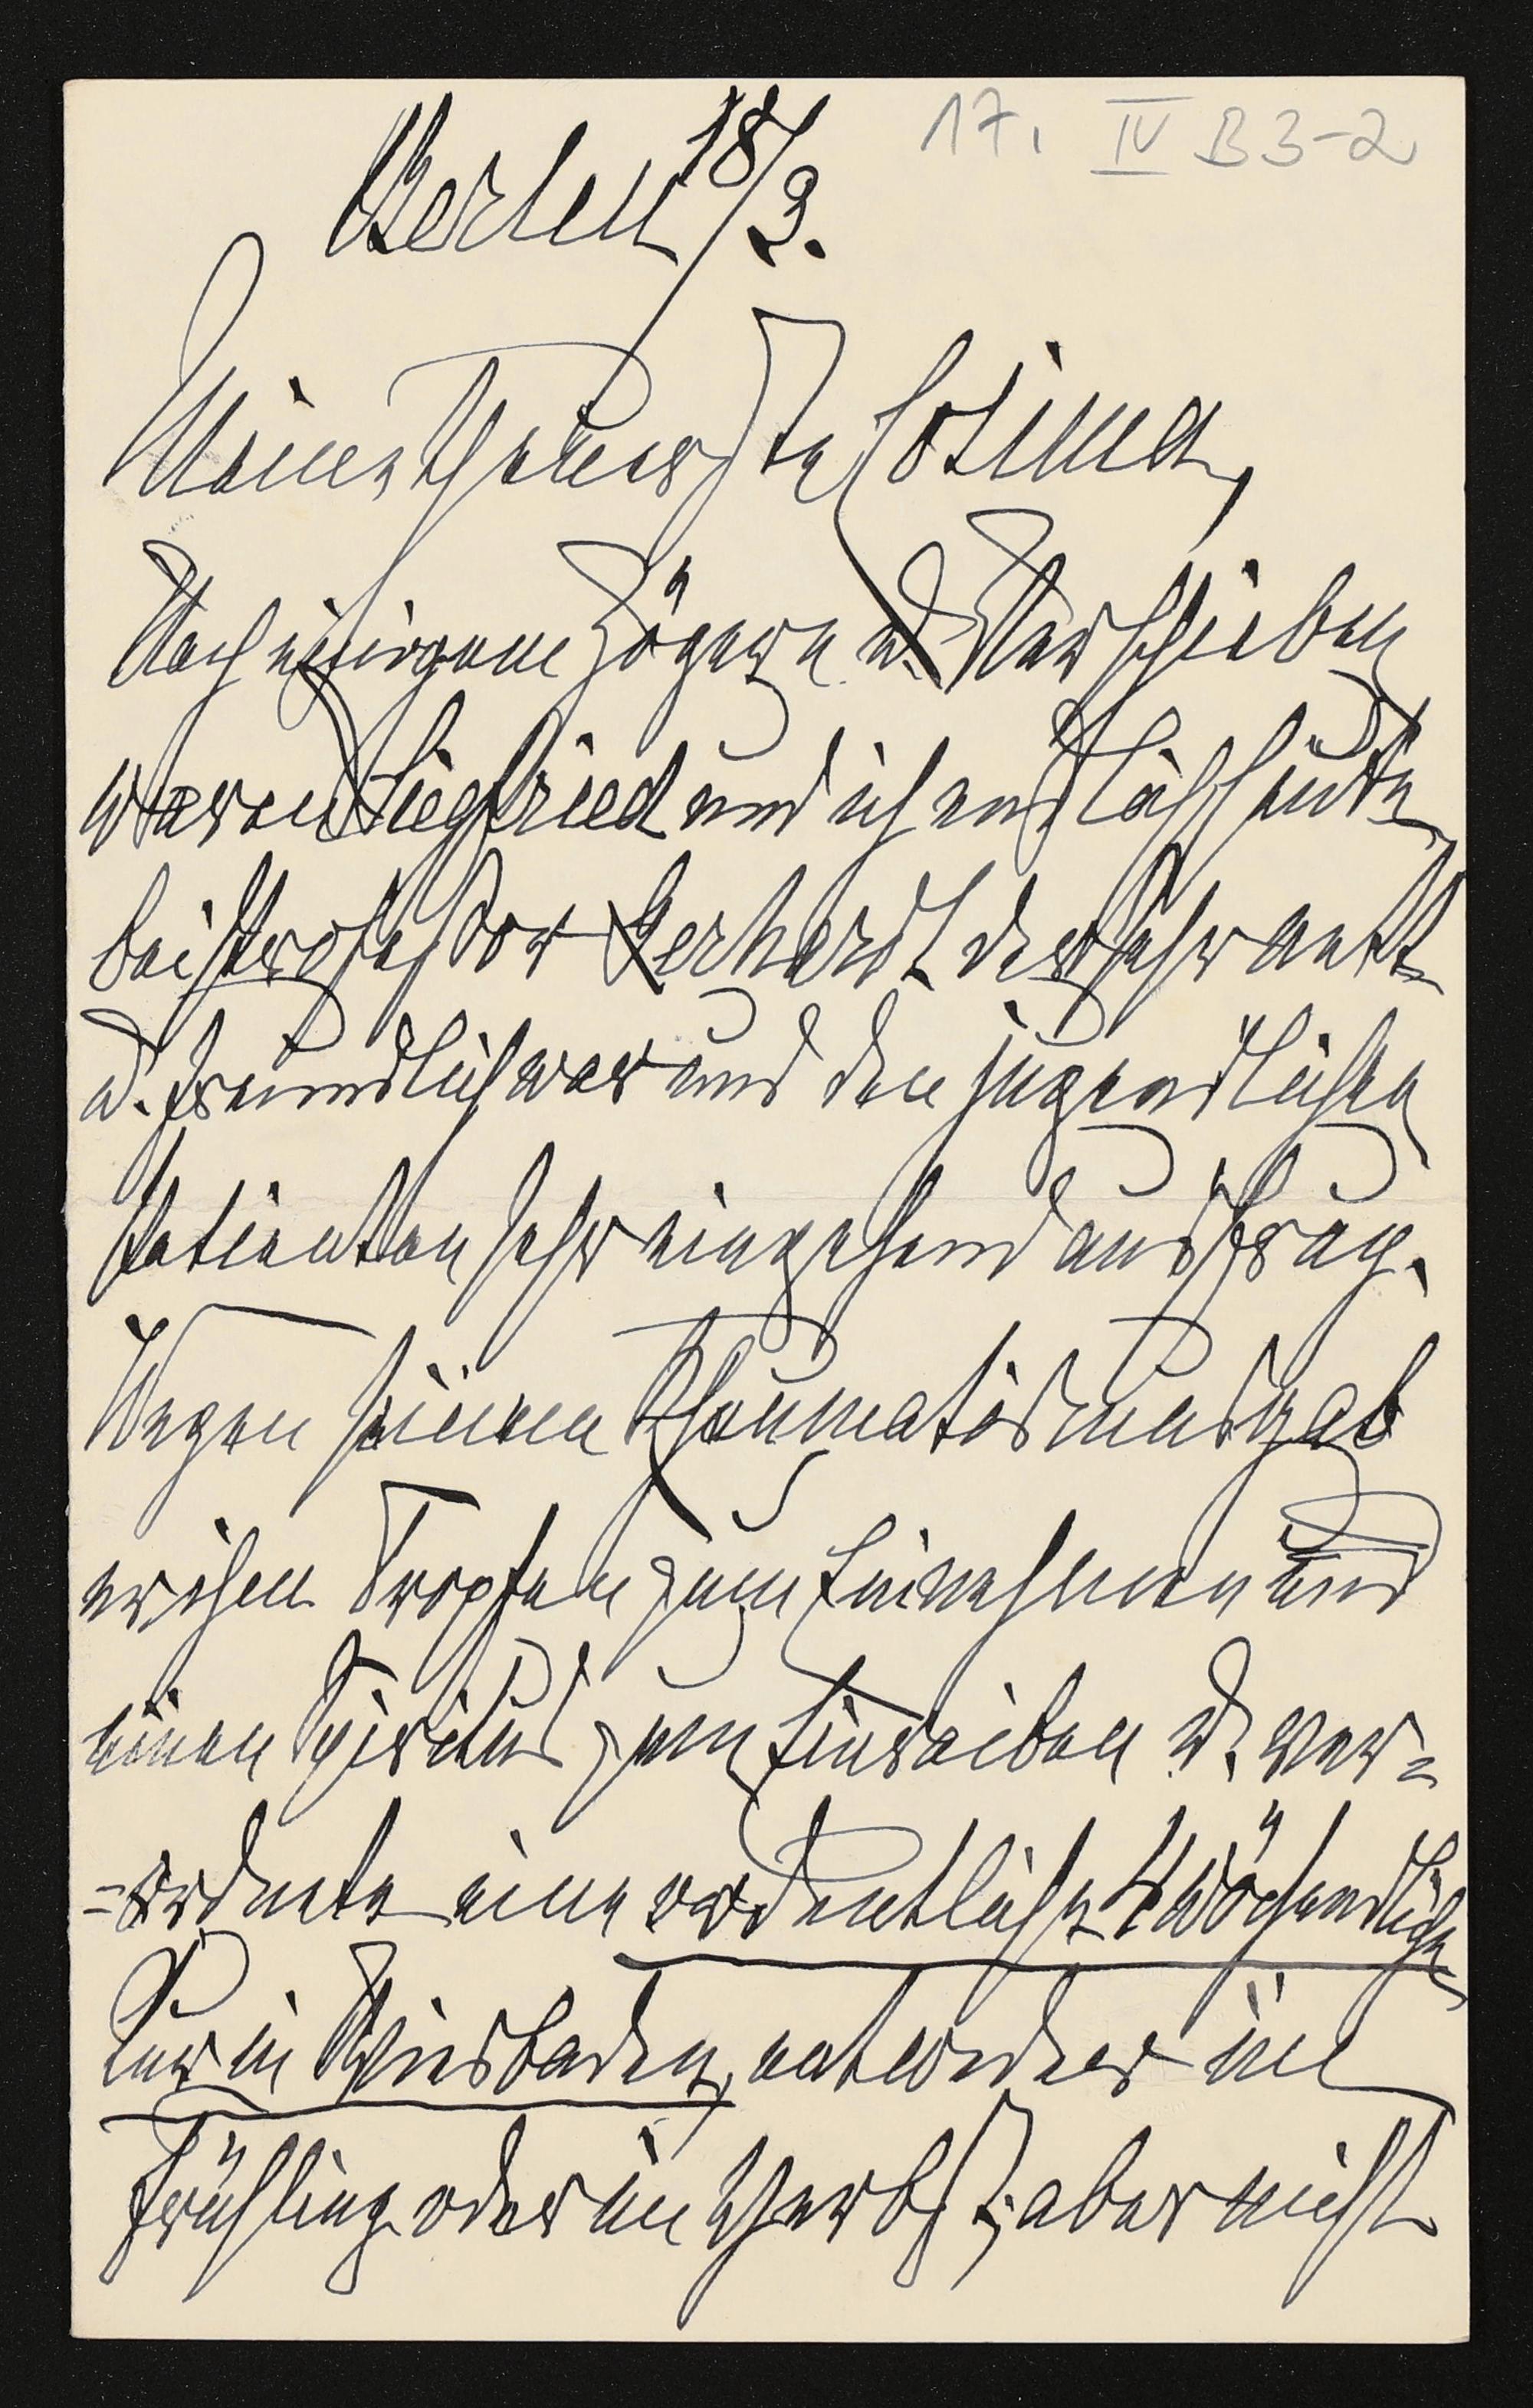 17. IV B 3-2
Berlin 18/3.
Meine theuerste Cosima,
Nach einigem Zögern u. Verschieben
waren Siegfried und ich endlich heute
bei Professor Gerhardt der sehr nett
u. freundlich war und den jugendlichen
Patienten sehr eingehend ausfrug.
Wegen seinen Rheumatismus gab
er ihm Tropfen zum Einnehmen und
einen Spiritus zum Einreiben u. ver=
=ordnete eine ordentliche 4 wöchendliche
Kur in Wiesbaden, entweder im
Frühling oder im Herbst, aber nicht